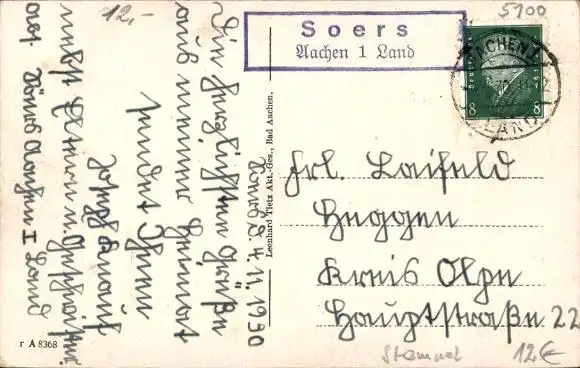 12,-
5100
Soers
Aachen 1 Land
AACHEN
LAND
8 8
Soers d. 4.11.1930
Ein herzlichen Grüße
aus meiner Heimat
sendet Ihnen
Joseph
nebst Eltern u. Geschwister
Aachen I Land
Leonhard Tietz Akt.-Ges., Bad Aachen.
Frl. Laifeld
Heggen
Kreis Olpe
Hauptstraße 22
r A 8368
Stempel
12€